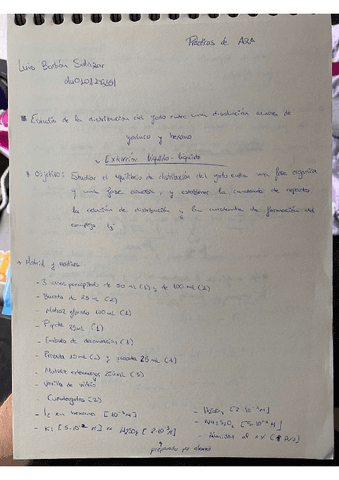 Prácticas de AQA
Luis Bastión Salazar
■ Estudio de la distribución del yodo entre una disolución acuosa de
yoduro y hexano
↳ Extracción líquido-líquido
Objetivo: Estudiar el equilibrio de distribución del yodo entre una fase orgánica
y una fase acuosa, y establecer la constante de reparto,
la relación de distribución y la constante de formación del
complejo I3-
Material y reactivos
- 3 vasos precipitado de 50 mL (1) y de 100 mL (2)
- Bureta de 25 mL (2)
- Matraz aforado 100 mL (1)
- Embudo de decantación (1)
- Probeta 10 mL (1) y probeta 25 mL (1)
- Matraz erlenmeyer 250 mL (3)
- Varilla de vidrio
- Cuentagotas (2)
- I2 en hexano [10-2 M]
- H2SO4 [2·10-3 M]
- KI [5·10-2 M] en H2SO4 [2·10-3 M]
- Na2S2O3 [5·10-3 M]
- Almidón al
preparado por alumno